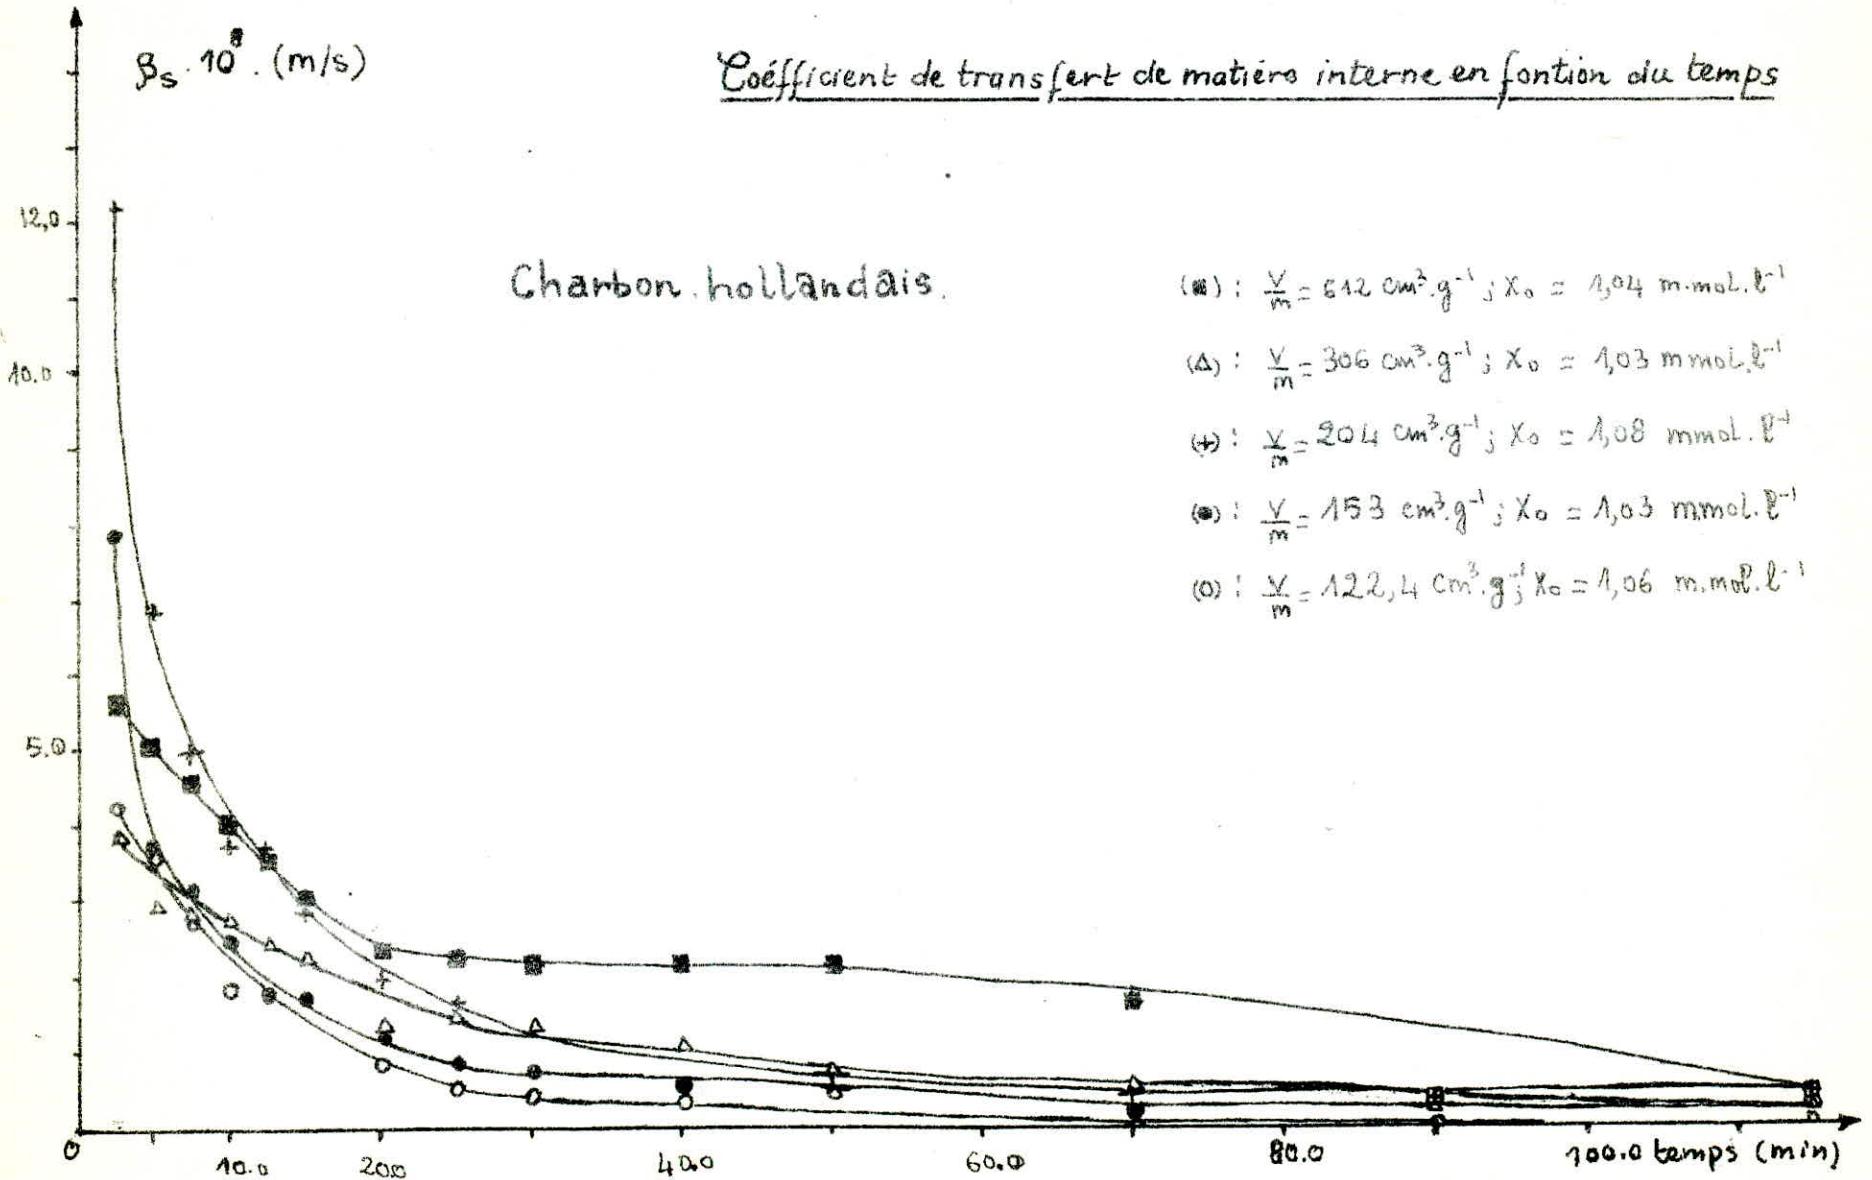 βs . 10⁸ . (m/s)
Coéfficient de transfert de matiére interne en fontion du temps
Charbon hollandais.
(■) : V/m = 612 cm³.g⁻¹ ; X₀ = 1,04 m.mol.l⁻¹
(Δ) : V/m = 306 cm³.g⁻¹ ; X₀ = 1,03 mmol.l⁻¹
(+) : V/m = 204 cm³.g⁻¹ ; X₀ = 1,08 mmol.l⁻¹
(●) : V/m = 153 cm³.g⁻¹ ; X₀ = 1,03 mmol.l⁻¹
(O) : V/m = 122,4 cm³.g⁻¹ ; X₀ = 1,06 m.mol.l⁻¹
12,0
10.0
5.0
0 10.0 20.0 40.0 60.0 80.0 100.0 temps (min)